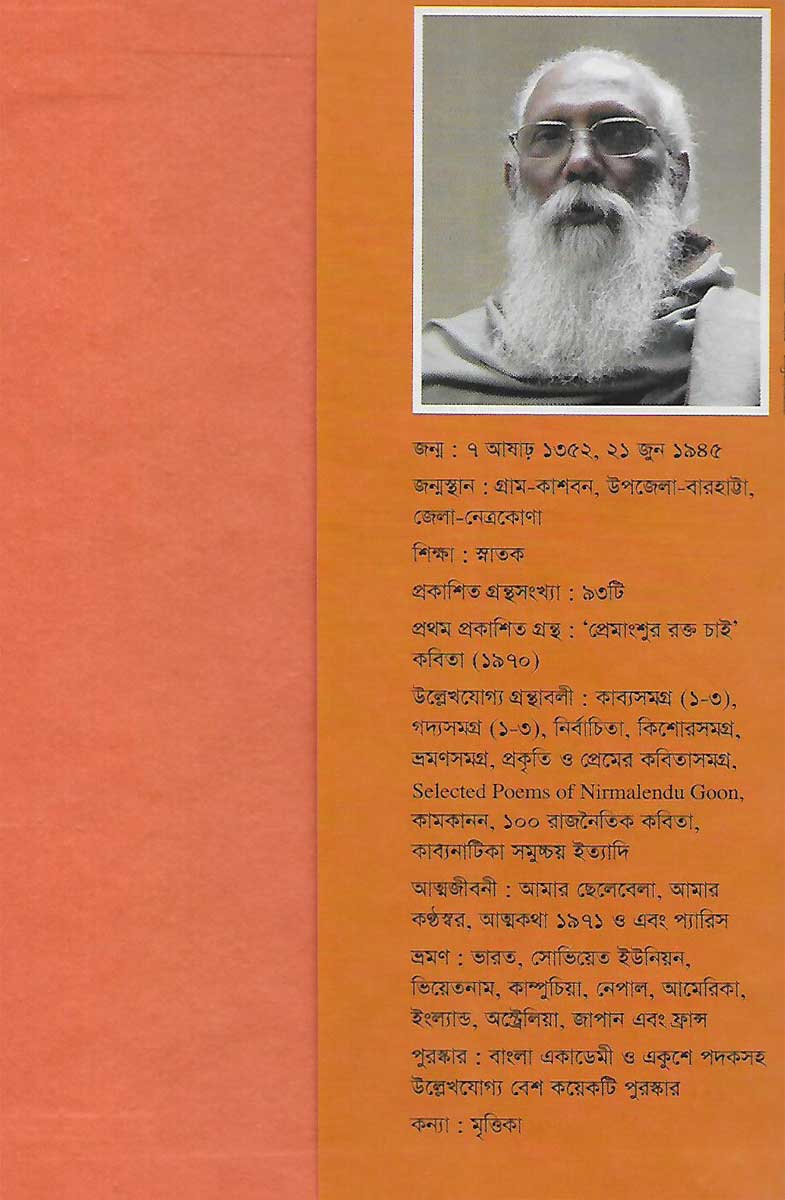 জন্ম : ৭ আষাঢ় ১৩৫২, ২১ জুন ১৯৪৫
জন্মস্থান : গ্রাম-কাশবন, উপজেলা-বারহাট্টা,
জেলা-নেত্রকোণা
শিক্ষা : স্নাতক
প্রকাশিত গ্রন্থসংখ্যা : ৯৩টি
প্রথম প্রকাশিত গ্রন্থ : ‘প্রেমাংশুর রক্ত চাই’
কবিতা (১৯৭০)
উল্লেখযোগ্য গ্রন্থাবলী : কাব্যসমগ্র (১-৩),
গদ্যসমগ্র (১-৩), নির্বাচিতা, কিশোরসমগ্র,
ভ্রমণসমগ্র, প্রকৃতি ও প্রেমের কবিতাসমগ্র,
Selected Poems of Nirmalendu Goon,
কামকানন, ১০০ রাজনৈতিক কবিতা,
কাব্যনাটিকা সমুচ্চয় ইত্যাদি
আত্মজীবনী : আমার ছেলেবেলা, আমার
কণ্ঠস্বর, আত্মকথা ১৯৭১ ও এবং প্যারিস
ভ্রমণ : ভারত, সোভিয়েত ইউনিয়ন,
ভিয়েতনাম, কাম্পুচিয়া, নেপাল, আমেরিকা,
ইংল্যান্ড, অস্ট্রেলিয়া, জাপান এবং ফ্রান্স
পুরস্কার : বাংলা একাডেমী ও একুশে পদকসহ
উল্লেখযোগ্য বেশ কয়েকটি পুরস্কার
কন্যা : মৃত্তিকা